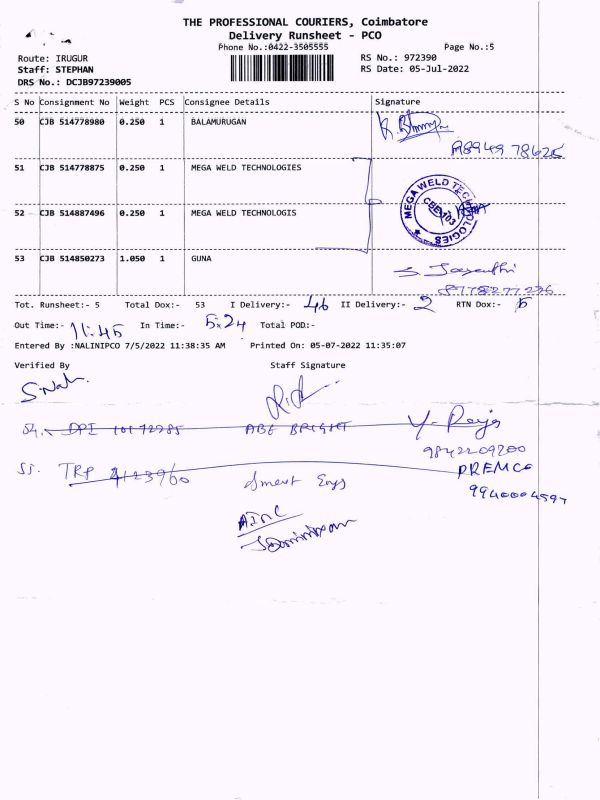 THE PROFESSIONAL COURIERS, Coimbatore
Delivery Runsheet - PCO
Phone No.:0422-3505555 Page No.:5
Route: IRUGUR RS No.: 972390
Staff: STEPHAN RS Date: 05-Jul-2022
DRS No.: DCJB97239005
S No Consignment No Weight PCS Consignee Details Signature
50 CJB 514778980 0.250 1 BALAMURUGAN
8949 78625
51 CJB 514778875 0.250 1 MEGA WELD TECHNOLOGIES
MEGA WELD TECHNOLOGIES
52 CJB 514887496 0.250 1 MEGA WELD TECHNOLOGIS
53 CJB 514850273 1.050 1 GUNA
S. Jayanthi
8778277226
Tot. Runsheet:- 5 Total Dox:- 53 I Delivery:- 46 II Delivery:- 2 RTN Dox:- 5
Out Time:- 11:45 In Time:- 5:24 Total POD:-
Entered By :NALINIPCO 7/5/2022 11:38:35 AM Printed On: 05-07-2022 11:35:07
Verified By Staff Signature
54. DPI 10172985 ABE BRIGHT
9842209200
55. TRP 4123960 Smart Engs PREMCO
9940004597